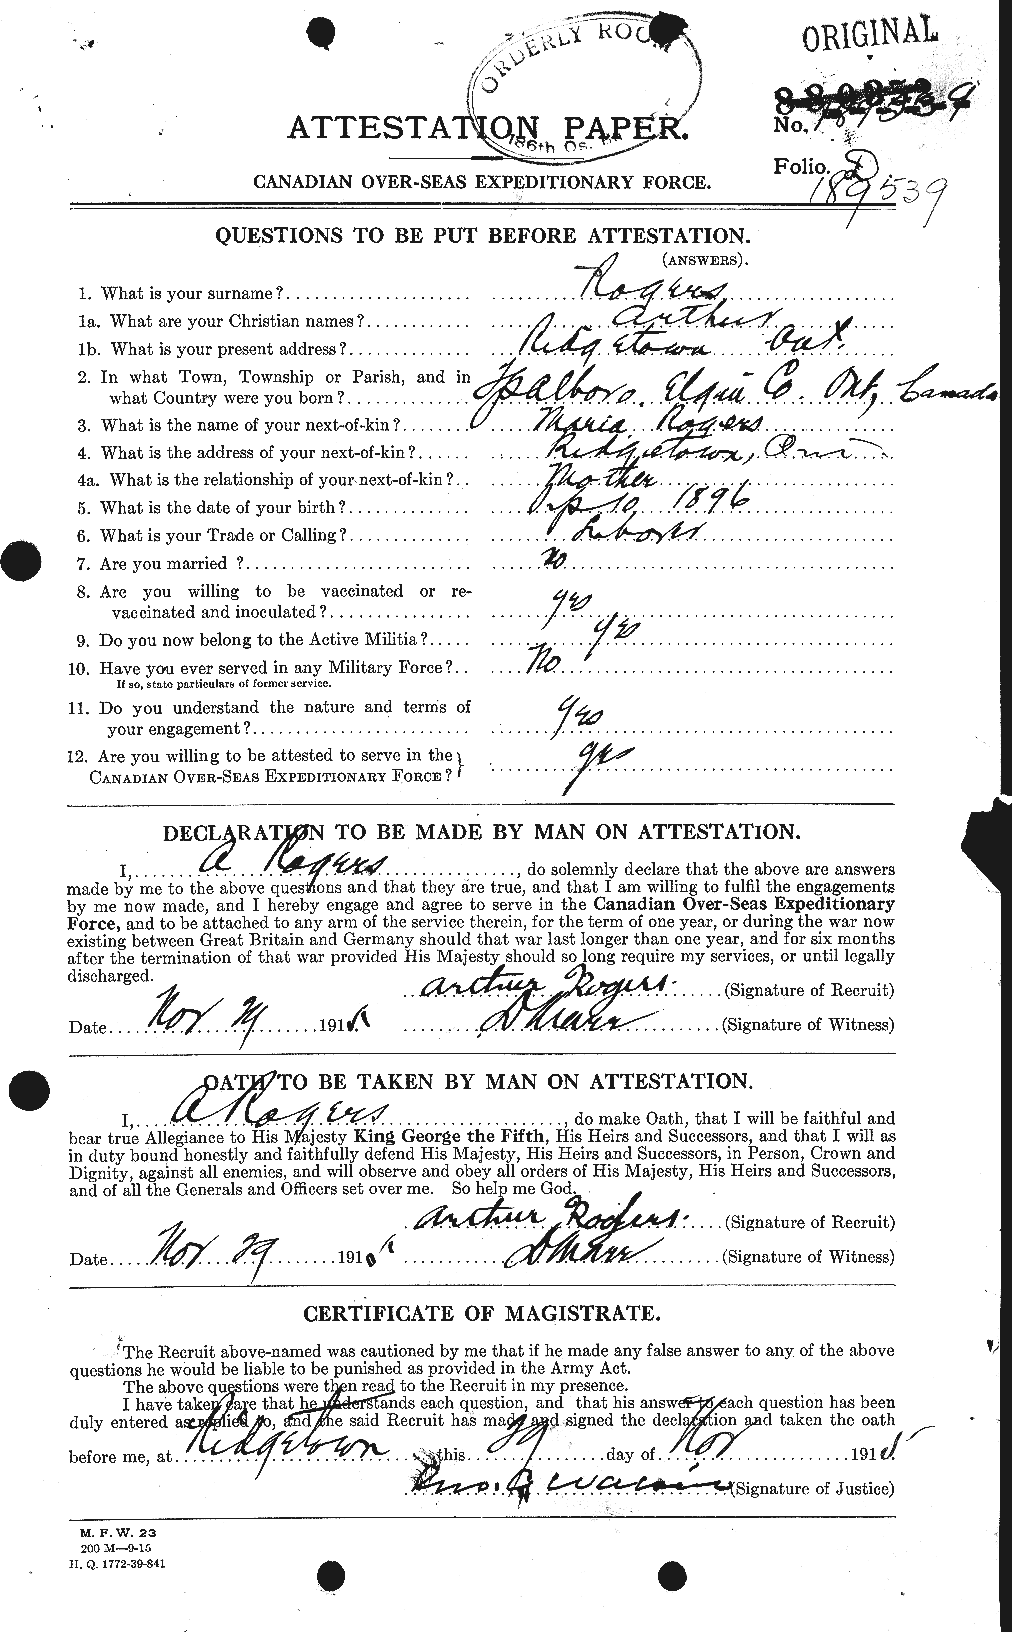 ORIGINAL
ORDERLY ROOM
186th
ATTESTATION PAPER.
No. 189539
Folio.
189539
CANADIAN OVER-SEAS EXPEDITIONARY FORCE.
QUESTIONS TO BE PUT BEFORE ATTESTATION.
(ANSWERS).
1. What is your surname? Rogers
1a. What are your Christian names? Arthur
1b. What is your present address? Ridgetown Ont.
2. In what Town, Township or Parish, and in
what Country were you born? Elgin Co. Ont, Canada
3. What is the name of your next-of-kin? Maria Rogers
4. What is the address of your next-of-kin? Ridgetown, Ont
4a. What is the relationship of your next-of-kin? Mother
5. What is the date of your birth? 10 1896
6. What is your Trade or Calling? Laborer
7. Are you married ? No
8. Are you willing to be vaccinated or re-
vaccinated and inoculated? yes
9. Do you now belong to the Active Militia? yes
10. Have you ever served in any Military Force? No
If so, state particulars of former service.
11. Do you understand the nature and terms of
your engagement? yes
12. Are you willing to be attested to serve in the
CANADIAN OVER-SEAS EXPEDITIONARY FORCE? yes
DECLARATION TO BE MADE BY MAN ON ATTESTATION.
I, A Rogers, do solemnly declare that the above are answers
made by me to the above questions and that they are true, and that I am willing to fulfil the engagements
by me now made, and I hereby engage and agree to serve in the Canadian Over-Seas Expeditionary
Force, and to be attached to any arm of the service therein, for the term of one year, or during the war now
existing between Great Britain and Germany should that war last longer than one year, and for six months
after the termination of that war provided His Majesty should so long require my services, or until legally
discharged.
Arthur Rogers (Signature of Recruit)
Date Nov 29 1915 D Marr (Signature of Witness)
OATH TO BE TAKEN BY MAN ON ATTESTATION.
I, A Rogers, do make Oath, that I will be faithful and
bear true Allegiance to His Majesty King George the Fifth, His Heirs and Successors, and that I will as
in duty bound honestly and faithfully defend His Majesty, His Heirs and Successors, in Person, Crown and
Dignity, against all enemies, and will observe and obey all orders of His Majesty, His Heirs and Successors,
and of all the Generals and Officers set over me. So help me God.
Arthur Rogers (Signature of Recruit)
Date Nov 29 1915 D Marr (Signature of Witness)
CERTIFICATE OF MAGISTRATE.
The Recruit above-named was cautioned by me that if he made any false answer to any of the above
questions he would be liable to be punished as provided in the Army Act.
The above questions were then read to the Recruit in my presence.
I have taken care that he understands each question, and that his answer to each question has been
duly entered as replied to, and the said Recruit has made and signed the declaration and taken the oath
before me, at Ridgetown this 29 day of Nov 1915
(Signature of Justice)
M. F. W. 23
200 M—9-15
H. Q. 1772-39-841